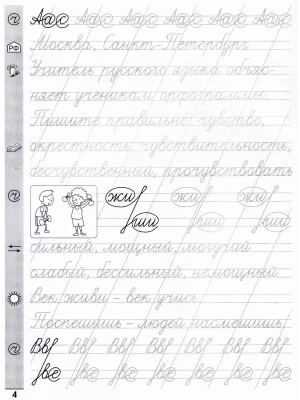 Аас Аас Аас Аас Аас Аас Аас
РФ
Москва, Санкт-Петербург
Учитель русского языка объяс-
няет ученикам орфограммы.
Пишите правильно: чувство,
окрестность, чувствительность,
бесчувственный, прочувствовать
жи жи жи
ши ши ши
сильный, мощный, могучий
слабый, бессильный, немощный
Век живи – век учись.
Поспешишь – людей насмешишь.
4